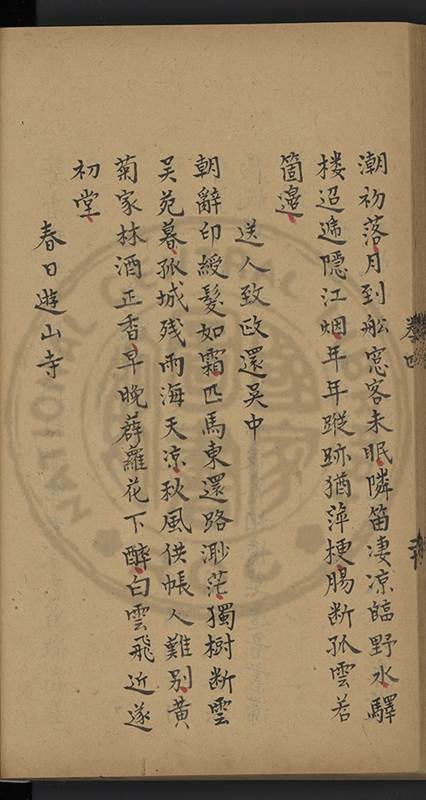 潮初落月到舩窓客未眠隣笛凄凉臨野水驛
楼迢遞隱江烟年年蹤跡猶萍梗腸断孤雲若
箇邉
送人致政還吴中
朝辭印綬髮如霜匹馬東還路渺茫獨樹断雲
吴苑暮孤城残雨海天凉秋風供帳人難别黄
菊家林酒正香早晚薜羅花下醉白雲飛近遂
初堂
春日遊山寺